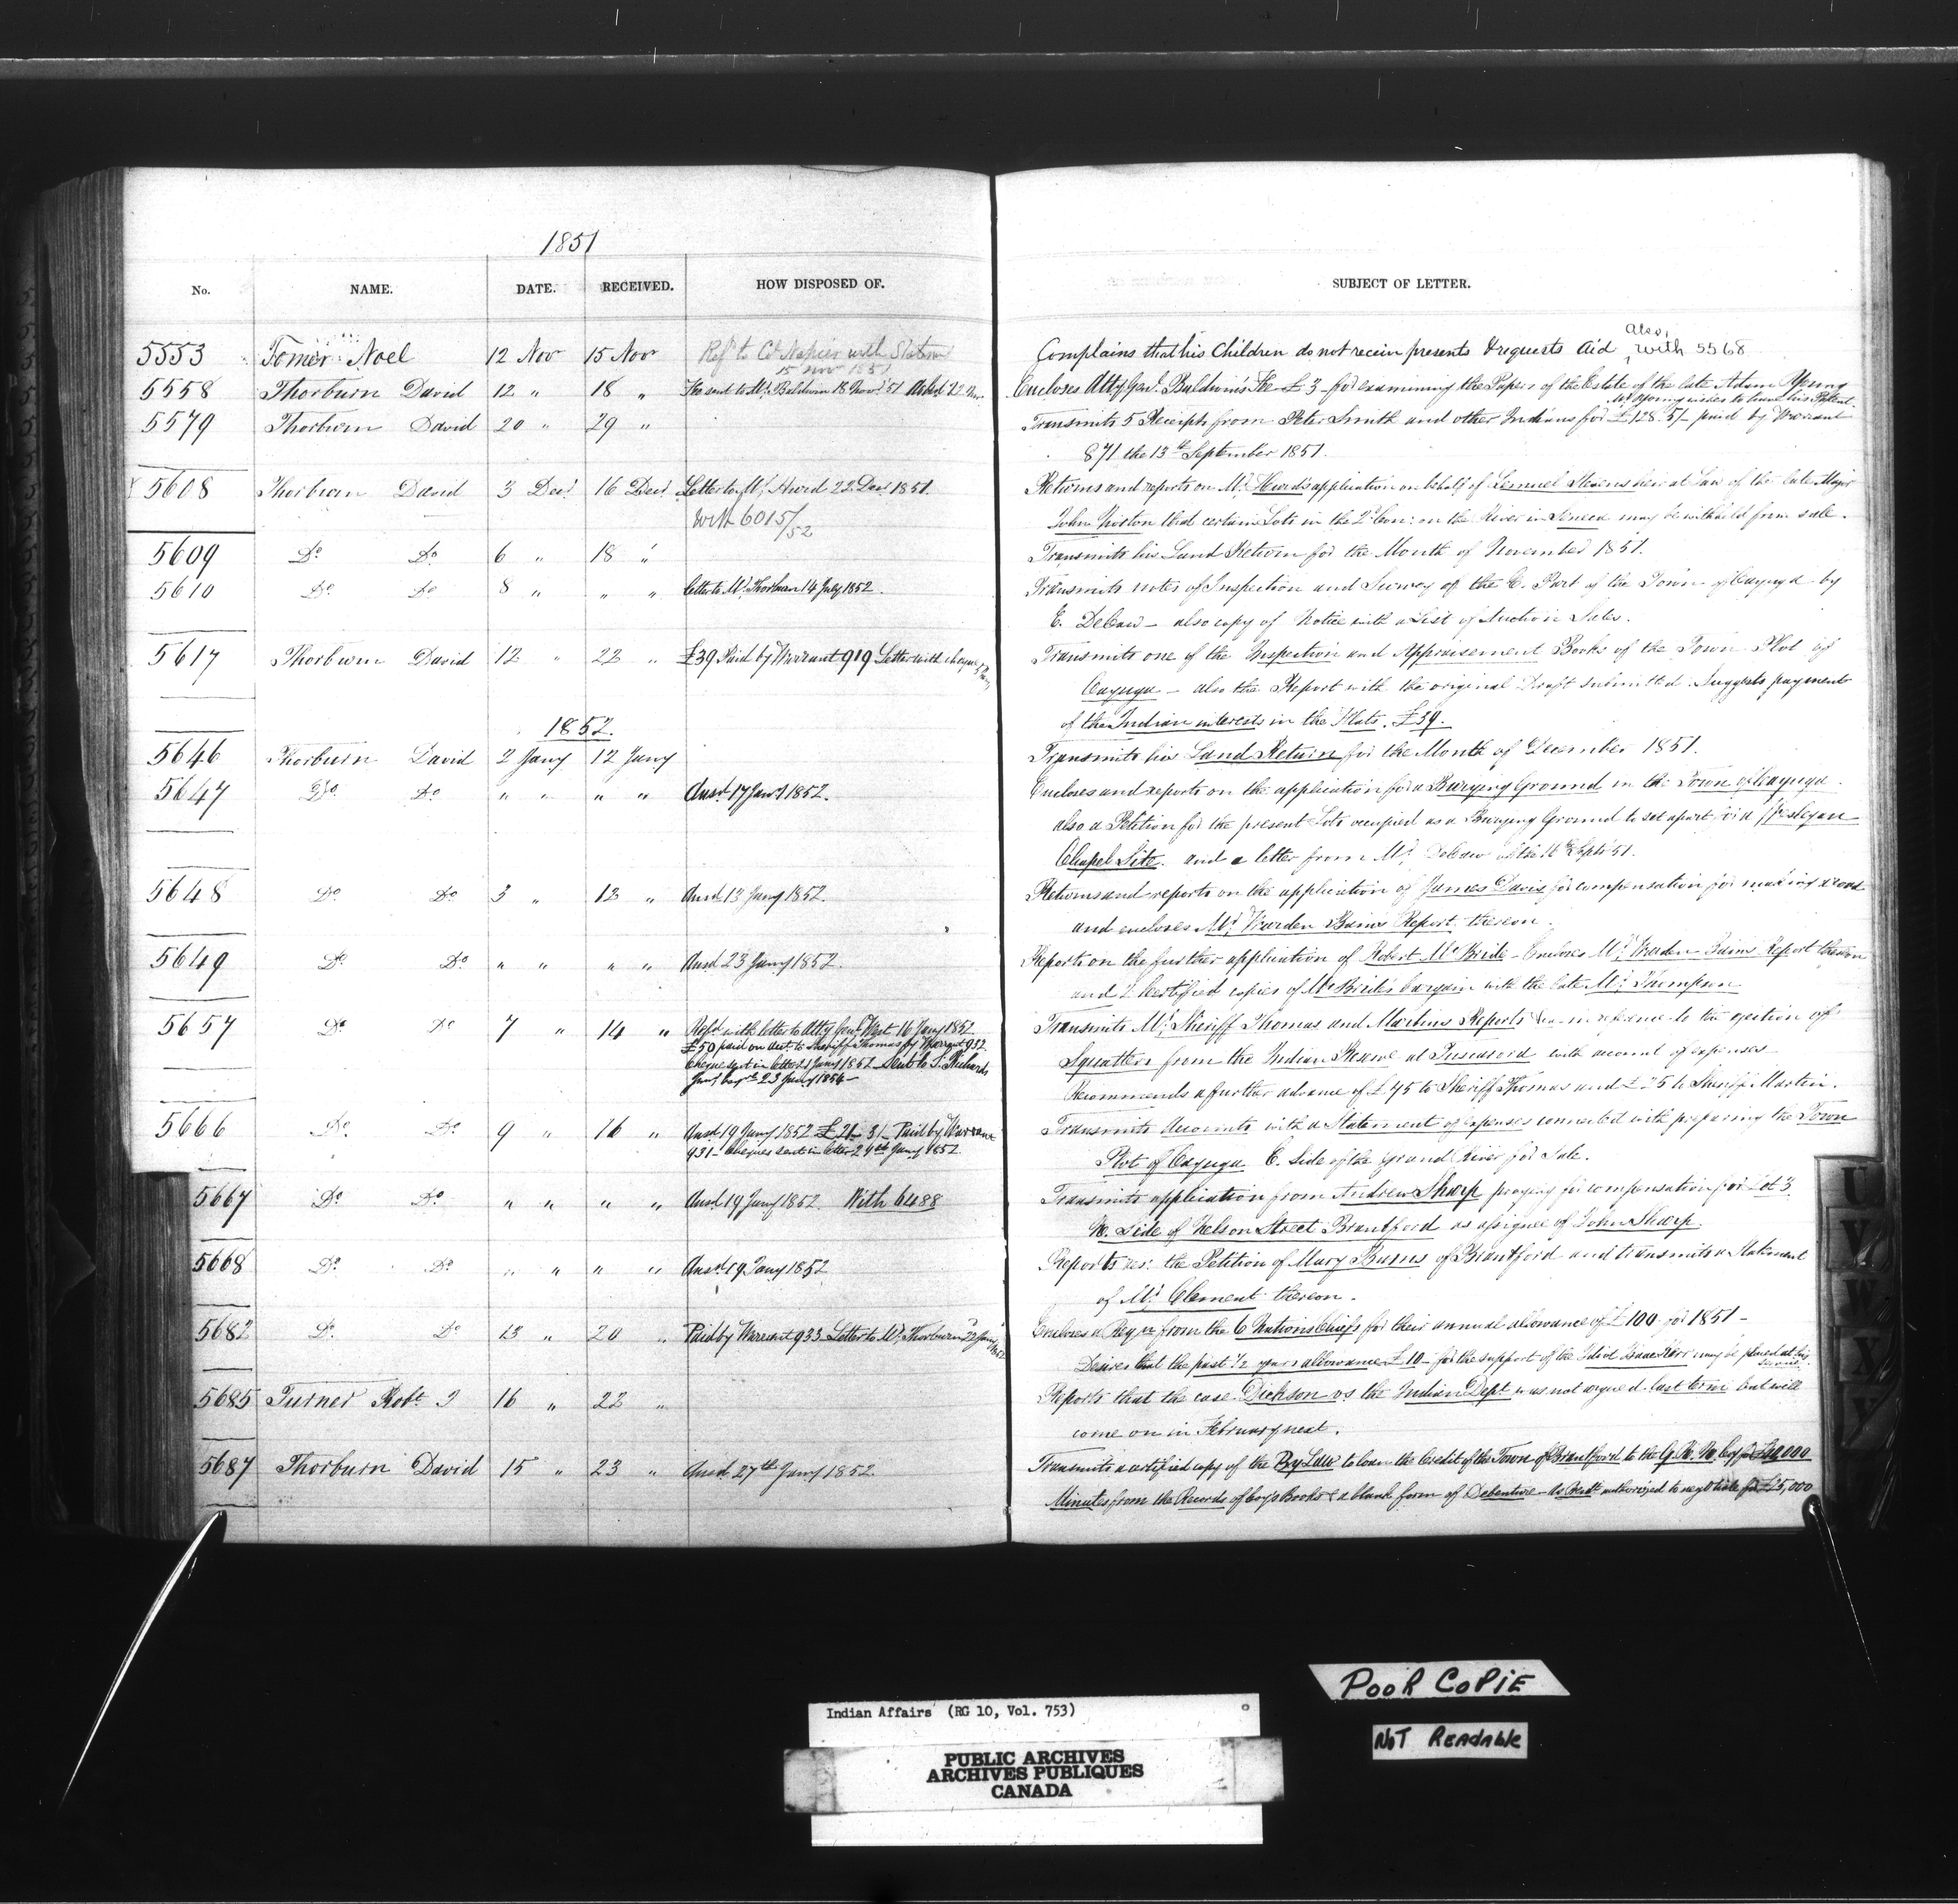 1851
No. NAME. DATE. RECEIVED. HOW DISPOSED OF. SUBJECT OF LETTER.
5553 Tomer Noel 12 Nov 15 Nov Refd to Col Napier with Statem 15 Nov 1851 Complains that his Children do not receive presents & requests Aid also, with 5568
5558 Thorburn David 12 " 18 " Fee sent to Mr. Baldwin 18 Novr 51 Ackd 22 Nov. Encloses Atty. Genl. Baldwin's Fee £3 for examining the Papers of the Estate of the late Adam Young
Mr Young wishes to have his Patent
5579 Thorburn David 20 " 29 " Transmits 5 Receipts from Peter Smith and other Indians for £128.5/- paid by Warrant
871 the 13th September 1851.
5608 Thorburn David 3 Decr. 16 Decr. Letter to Mr. Hurd 22 Decr 1851. Returns and reports on Mr. Hurd's application on behalf of Lemuel Stevens heir at Law of the late Major
With 6015/52 John Norton that certain Lots in the 2d Con: on the River in Seneca may be withheld from sale.
5609 Do. Do. 6 " 18 " Transmits his Land Return for the Month of November 1851.
5610 Do. Do 8 " " " Letter to Mr. Thorburn 14 July 1852. Transmits notes of Inspection and Survey of the E. Part of the Town of Cayuga by
E. DeCew - also copy of Notice with a List of Auction Sales.
5617 Thorburn David 12 " 22 " £39 Paid by Warrant 919 Letter with cheque Transmits one of the Inspection and Appraisement Books of the Town Plot of
Cayuga - also the Report with the original Draft submitted. Suggests payment
of the Indian interests in the Flats. £39.
1852.
5646 Thorburn David 2 Jany 12 Jany Transmits his Land Return for the Month of December 1851.
5647 Do. Do. " " " " Ansd. 17 Jany 1852. Encloses and reports on the application for a Burying Ground in the Town of Cayuga.
also a Petition for the present Lots occupied as a Burying Ground to set apart for a Wesleyan
Chapel Site. and a letter from Mr. DeCew of the 16 Septr 51.
5648 Do Do. 3 " 13 " Ansd. 13 Jany 1852. Returns and reports on the application of James Davis for compensation for making a road
and encloses Mr. Warden Bain's Report thereon.
5649 Do. Do. " " " " Ansd 23 Jany 1852. Reports on the further application of Robert McBride - Encloses Mr. Warden Bains Report thereon
and 2 Certified copies of McBride's bargain with the late Mr. Thompson
5657 Do. Do 7 " 14 " Refd. with letter to Atty Genl. West 16 Jany 1852 Transmits Mr. Sheriff Thomas and Martins Reports &c in reference to the ejection of
£50 paid on acct. to Sheriff Thomas by Warrant 932. Squatters from the Indian Reserve at Tuscarora with account of expenses
Cheque sent in letter 21 Jany 1852 - Sent to S. Richards Recommends a further advance of £45 to Sheriff Thomas and £25 to Sheriff Martin.
23 Jany 1854 -
5666 Do. Do. 9 " 16 " Ansd 19 Jany 1852 £21 - 3/- Paid by Warrant Transmits Accounts with a Statement of expenses connected with preparing the Town
931 - Cheques sent in letter 24th Jany 1852 Plot of Cayuga E. side of the Grand River for Sale.
5667 Do Do. " " " " Ansd 19 Jany 1852. With 6488 Transmits application from Andrew Sharp praying for compensation for Lot 3
W. Side of Nelson Street Brantford as assignee of John Sharp.
5668 Do. Do. " " " " Ansd. 19 Jany 1852 Reports res: the Petition of Mary Burns of Brantford and transmits a Statement
of Mr. Clement thereon.
5682 Do. Do 13 " 20 " Paid by Warrant 933 Letter to Mr. Thorburn 22 Jany 1852 Encloses a Reqn from the 6 Nations Chiefs for their annual allowance of £100 for 1851 -
Desires that the past 1/2 years allowance £10 - for the support of the Idiot Isaac Kerr may be placed at his
5685 Turner Robt. J 16 " 22 " Reports that the case Dickson vs the Indian Dept was not argued last term but will
come on in February next.
5687 Thorburn David 15 " 23 " Ansd 27th Jany 1852 Transmits a certified copy of the By Law to loan the Credit of the Town of Brantford to the G. R. N. Coy for £40,000
Minutes from the Records of Coys Books & a blank form of Debenture - authorized to negotiate for £5,000
U
V
W
X
Y
POOR COPIE
NOT READABLE
Indian Affairs (RG 10, Vol. 753)
PUBLIC ARCHIVES
ARCHIVES PUBLIQUES
CANADA